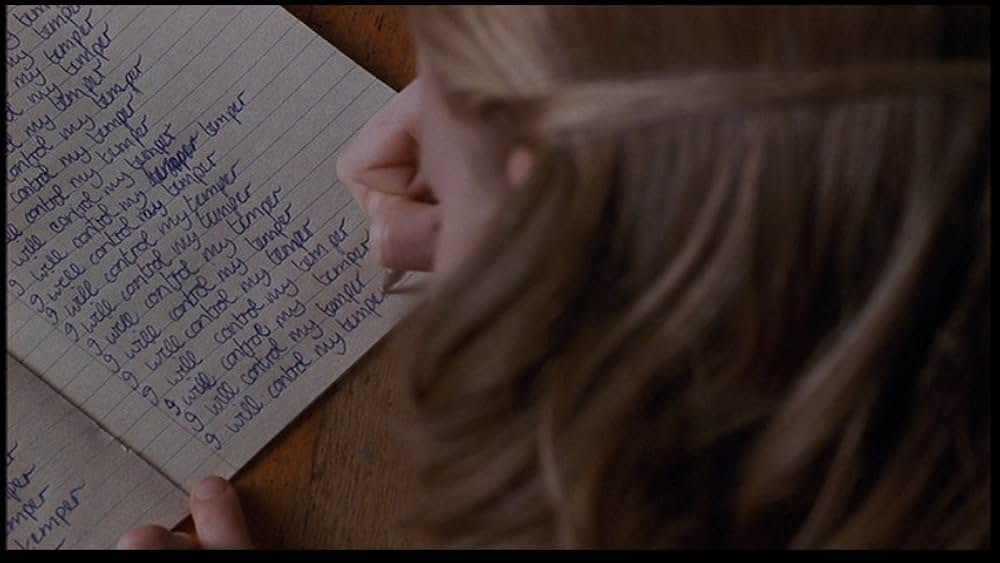 my temper
my temper
my temper
control my temper
control my temper
control my temper
will control my temper
I will control my temper temper
I will control my temper
I will control my temper
I will control my temper
I will control my temper
I will control my temper
I will control my temper
I will control my tem per
I will control my temper
I will control my temper
I will control my temper
temper